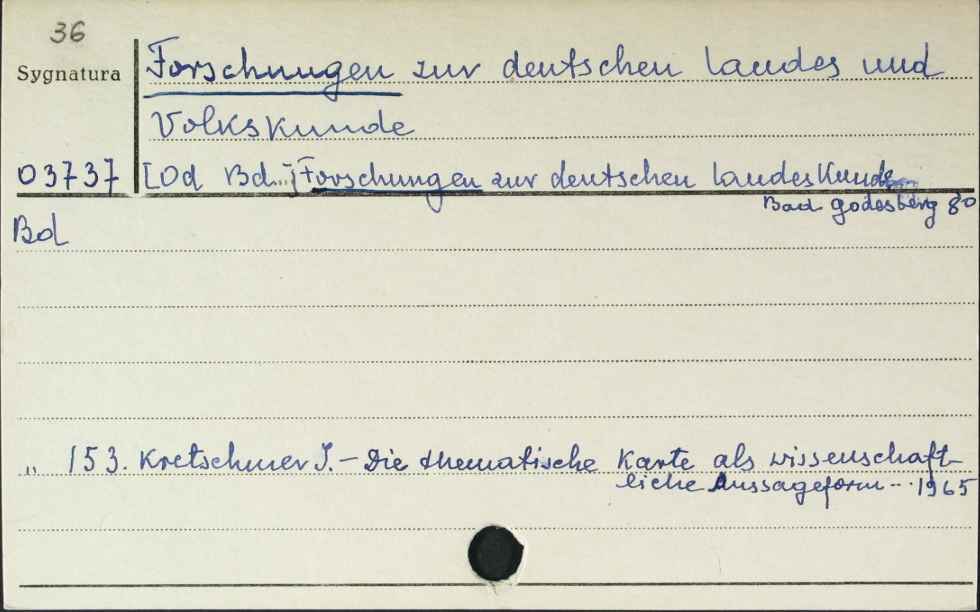 36
Sygnatura
Forschungen zur deutschen Landes und
Volkskunde
03737
[Od Bd...] Forschungen zur deutschen Landeskunde
Bad Godesberg 8°
Bd
„ 153. Kretschmer I. – Die thematische Karte als wissenschaft-
liche Aussageform... 1965